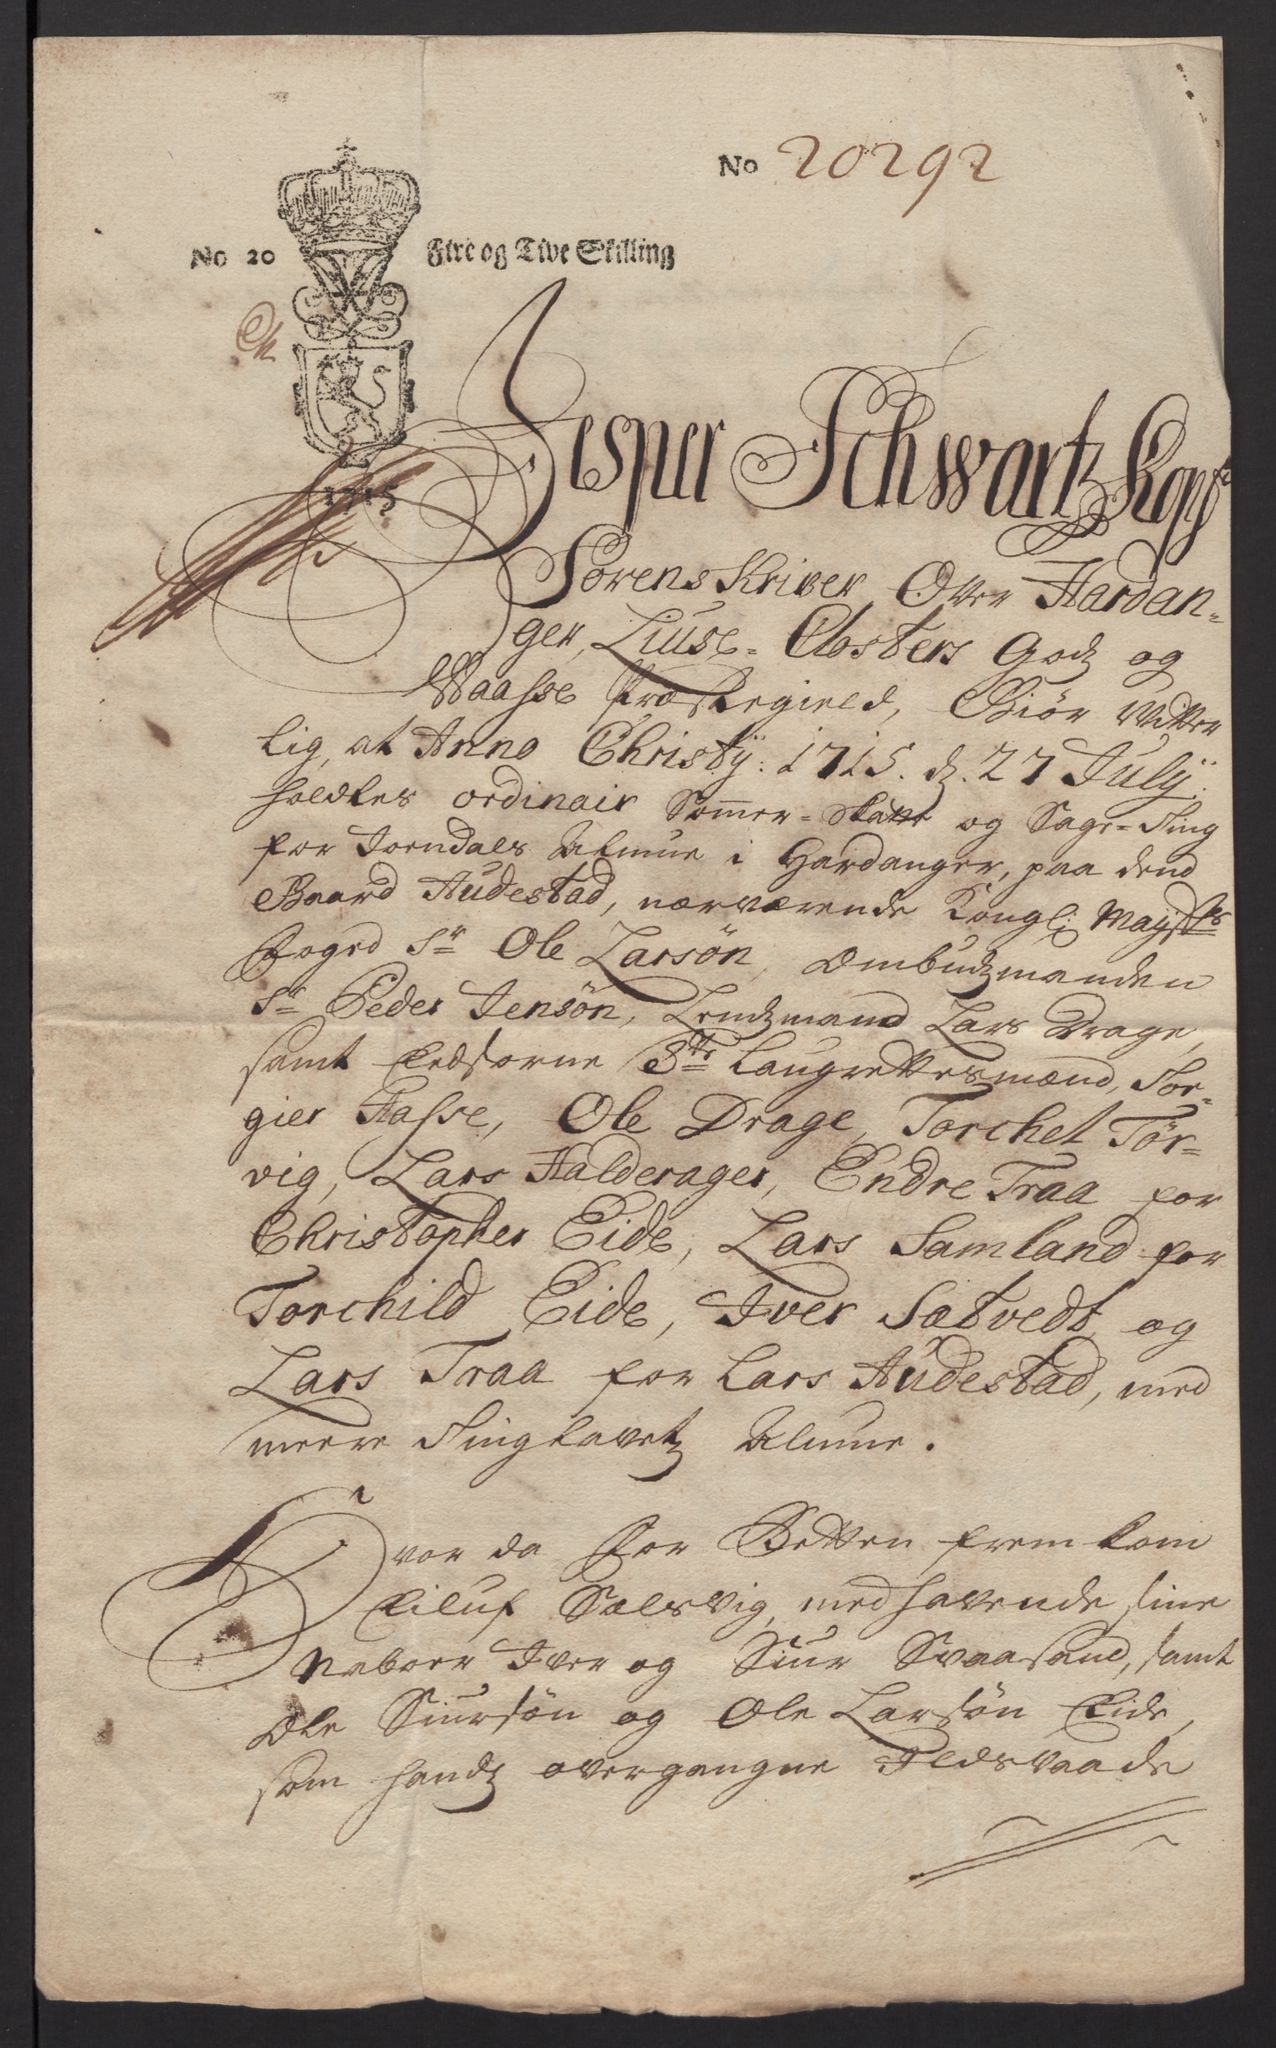 No 20292
No 20 Fire og Tive Skilling
1715
Jesper Schwartz Kopf
Sorenskriver Over Hardan-
ger, Liuse-Closters Godz og
Waasse Præstegield, Giør Vitter
lig, at Anno Christÿ: 1715. d. 27 Julÿ:
holdtes ordinair Sommer-Skatte og Sage-Ting
for Jondals Almue i Hardanger, paa dend
Gaard Audestad, nærværende Kongl: Mayts
Foged Sr Ole Larsøn, Ombudzmanden
Sr Peder Jensøn, Lendzmand Lars Drage,
samt Eedsorne 8te Laugrettesmænd, Tor-
gier Hasse, Ole Drage, Torchel Tør-
vig, Lars Halderager, Endre Traa for
Christopher Eide, Lars Samland for
Torchild Eide, Iver Sætvedt og
Lars Traa for Lars Audestad, med
meere Tinglavetz Almue.
Hvor da for Retten frem kom
Eiluf Solsvig, med havende sine
Naboer Iver og Siur Svaasand, samt
Ole Siursøn og Ole Larsøn Eide,
som handz overgangne Ildsvaade